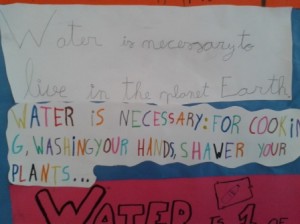 Water is necessary to
live in the planet Earth
WATER IS NECESSARY: FOR COOKIN
G, WASHING YOUR HANDS, SHAWER YOUR
PLANTS...
WATER IS 1 OF